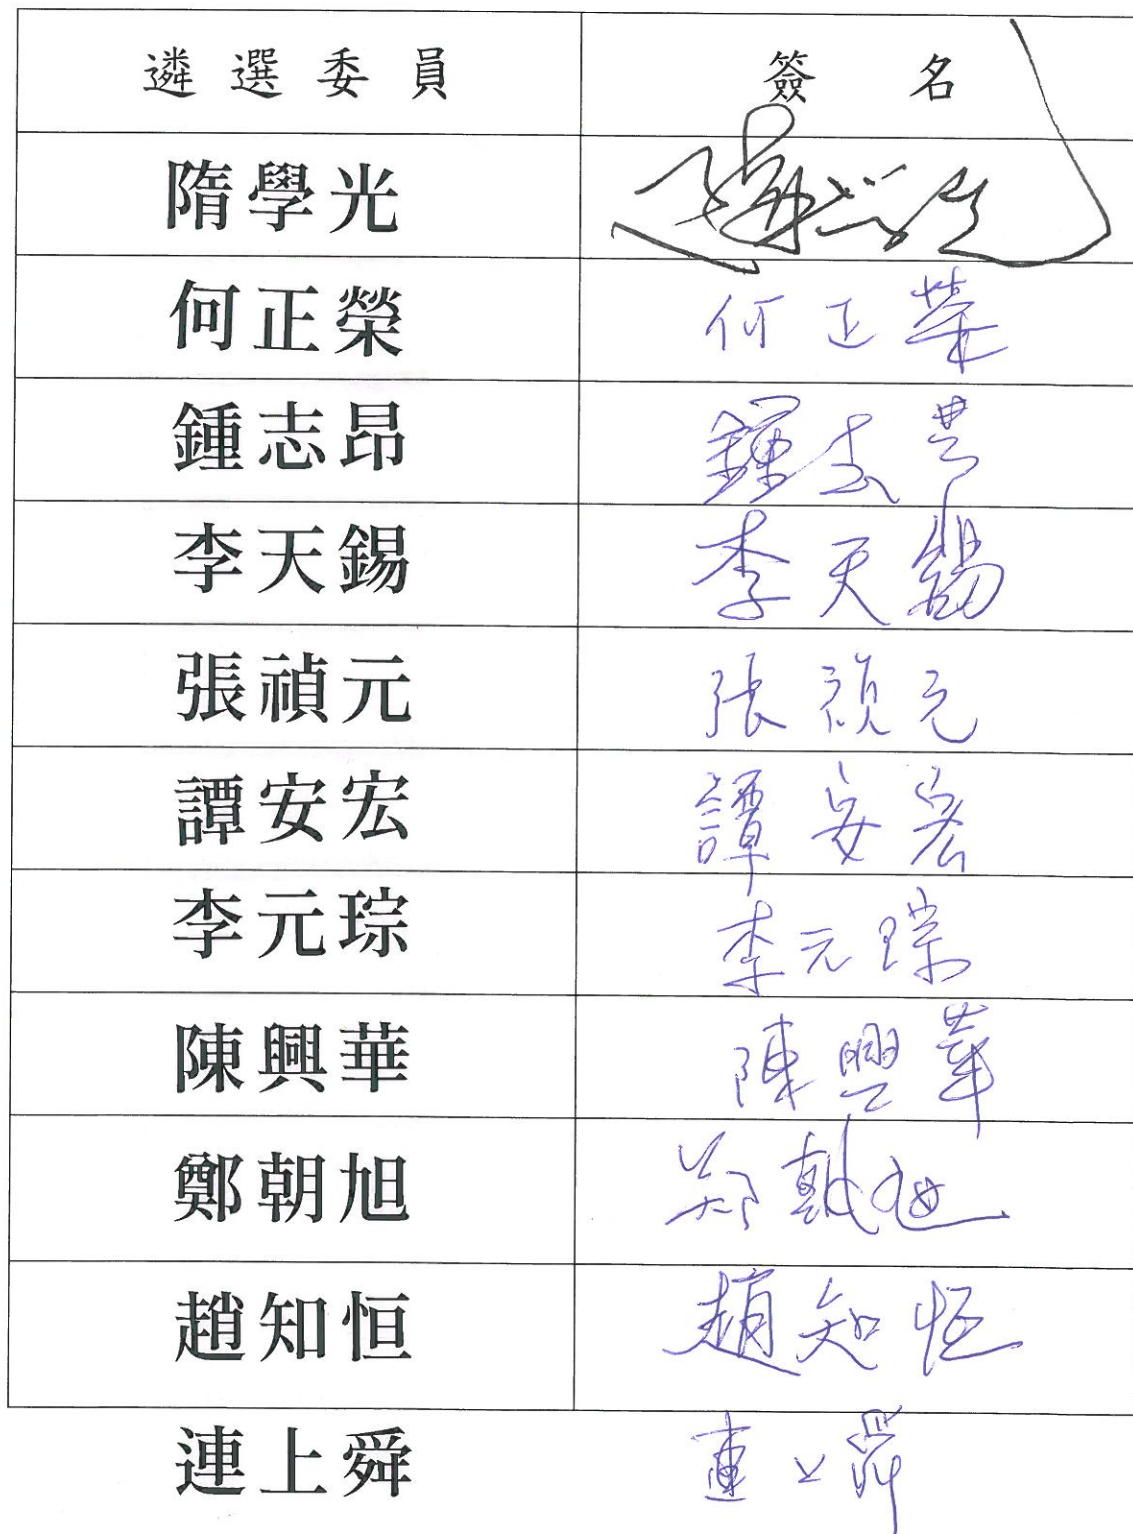 遴選委員 簽名
隋學光
何正榮 何正榮
鍾志昂 鍾志昂
李天錫 李天錫
張禎元 張禎元
譚安宏 譚安宏
李元琮 李元琮
陳興華 陳興華
鄭朝旭 鄭朝旭
趙知恒 趙知恒
連上舜 連上舜